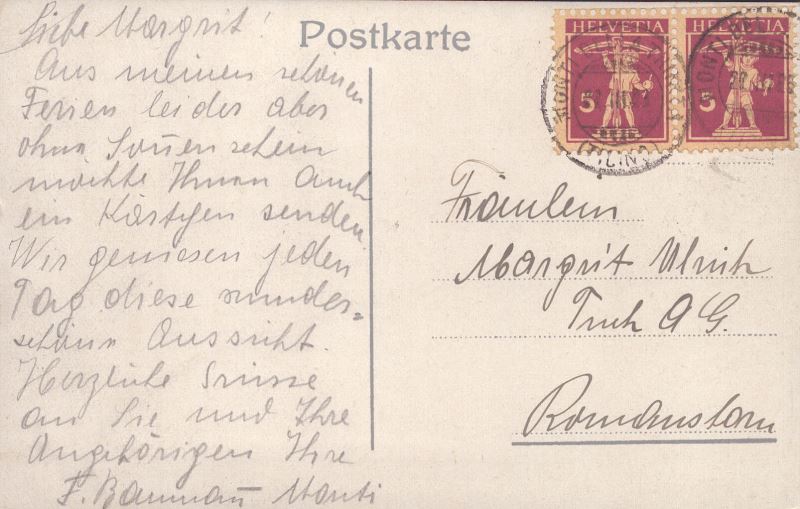 Liebe Margrit!
Aus meinen schönen
Ferien leider aber
ohne Sonnenschein
möchte Ihnen auch
ein Kärtchen senden.
Wir geniesen jeden
Tag diese wunder-
schöne Aussicht.
Herzliche Grüsse
an Sie und Ihre
Angehörigen Ihre
F. Baumann Monti
Postkarte
HELVETIA HELVETIA
5 5
(TICINO)
Fräulein
Margrit Ulrich
A G.
Romanshorn